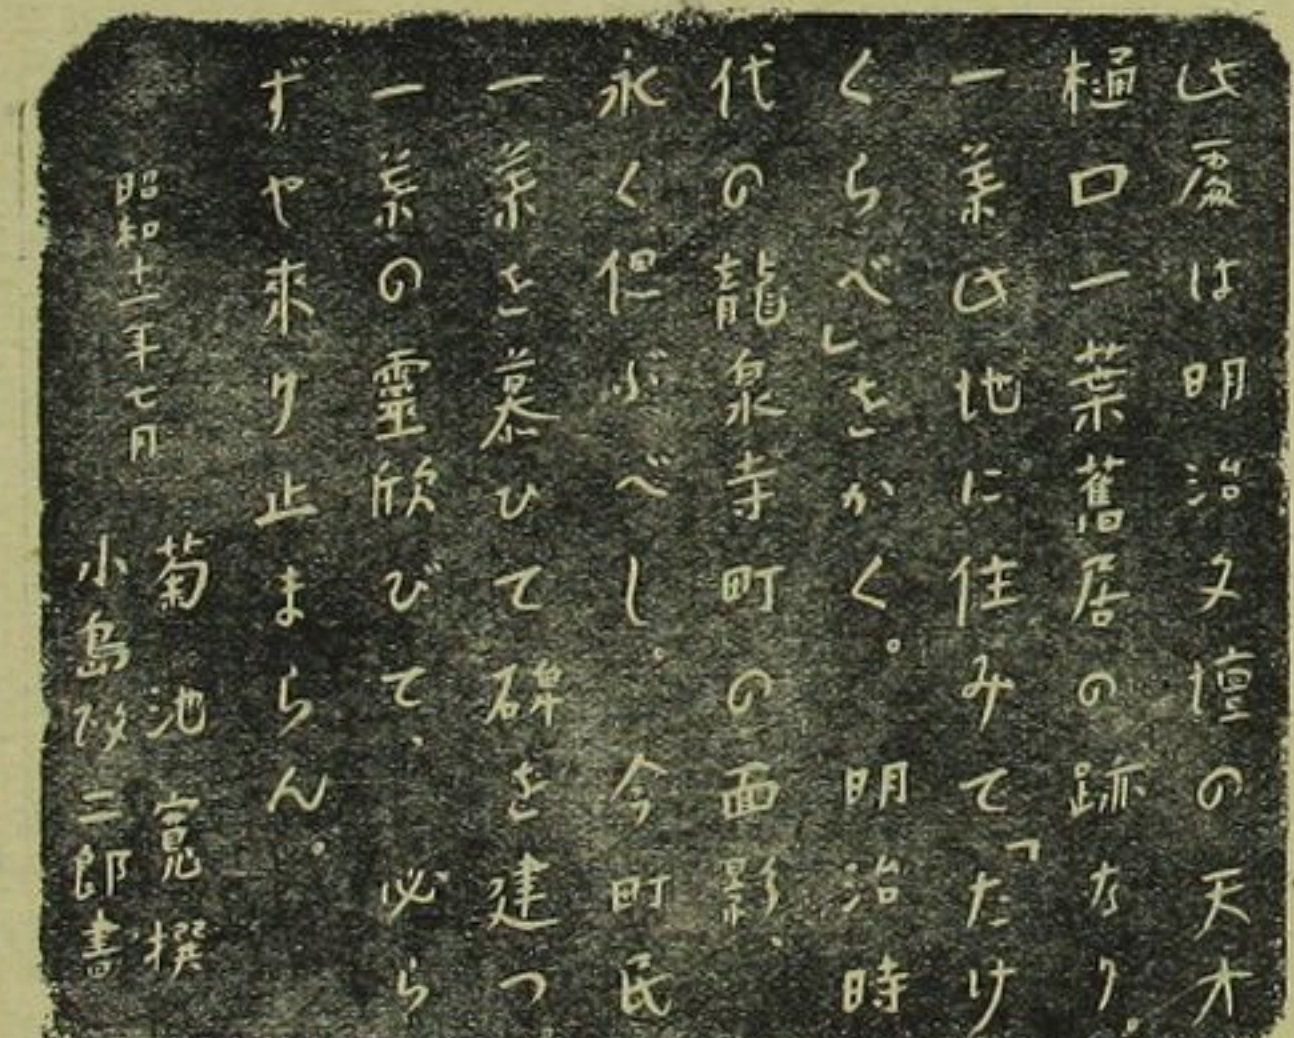 此處は明治文壇の天才
樋口一葉舊居の跡なり。
一葉此地に住みて「たけ
くらべ」をかく。明治時
代の龍泉寺町の面影、
永く偲ぶべし。今町民
一葉を慕ひて碑を建つ
一葉の靈欣びて、必ら
ずや來り止まらん。
昭和十一年七月
菊池寛撰
小島政二郎書